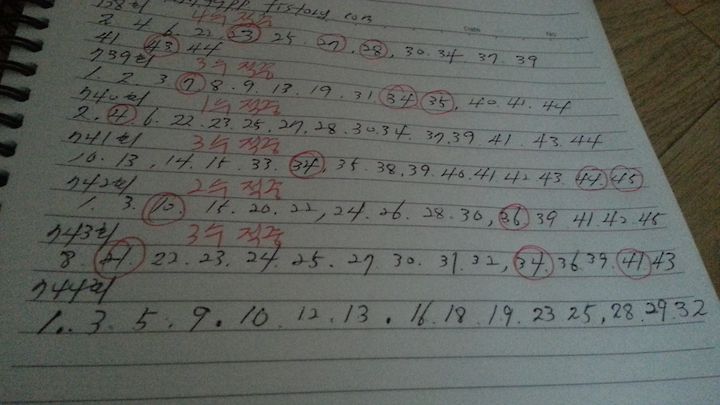 738회 tistory.com
4수 적중
2 4 6. 22. 23 25. 27, 28, 30. 34 37. 39
41 43 44
739회 3수 적중
1. 2. 3 7 8. 9. 13. 19. 31 34 35, 40. 41. 44
740회 1수 적중
2. 4 6. 22. 23. 25. 27. 28. 30. 34. 37. 39 41. 43. 44
741회 3수 적중
10. 13, 14. 15. 33. 34, 35. 38. 39. 40. 41. 42 43. 44. 45
742회 2수 적중
1. 3. 10. 15. 20. 22, 24. 26. 28. 30, 36 39 41. 42. 45
743회 3수 적중
8. 21 22. 23. 24. 25. 27 30. 31. 32, 34. 36. 39. 41 43
744회
1. 3. 5. 9. 10. 12. 13. 16. 18. 19. 23 25, 28. 29. 32